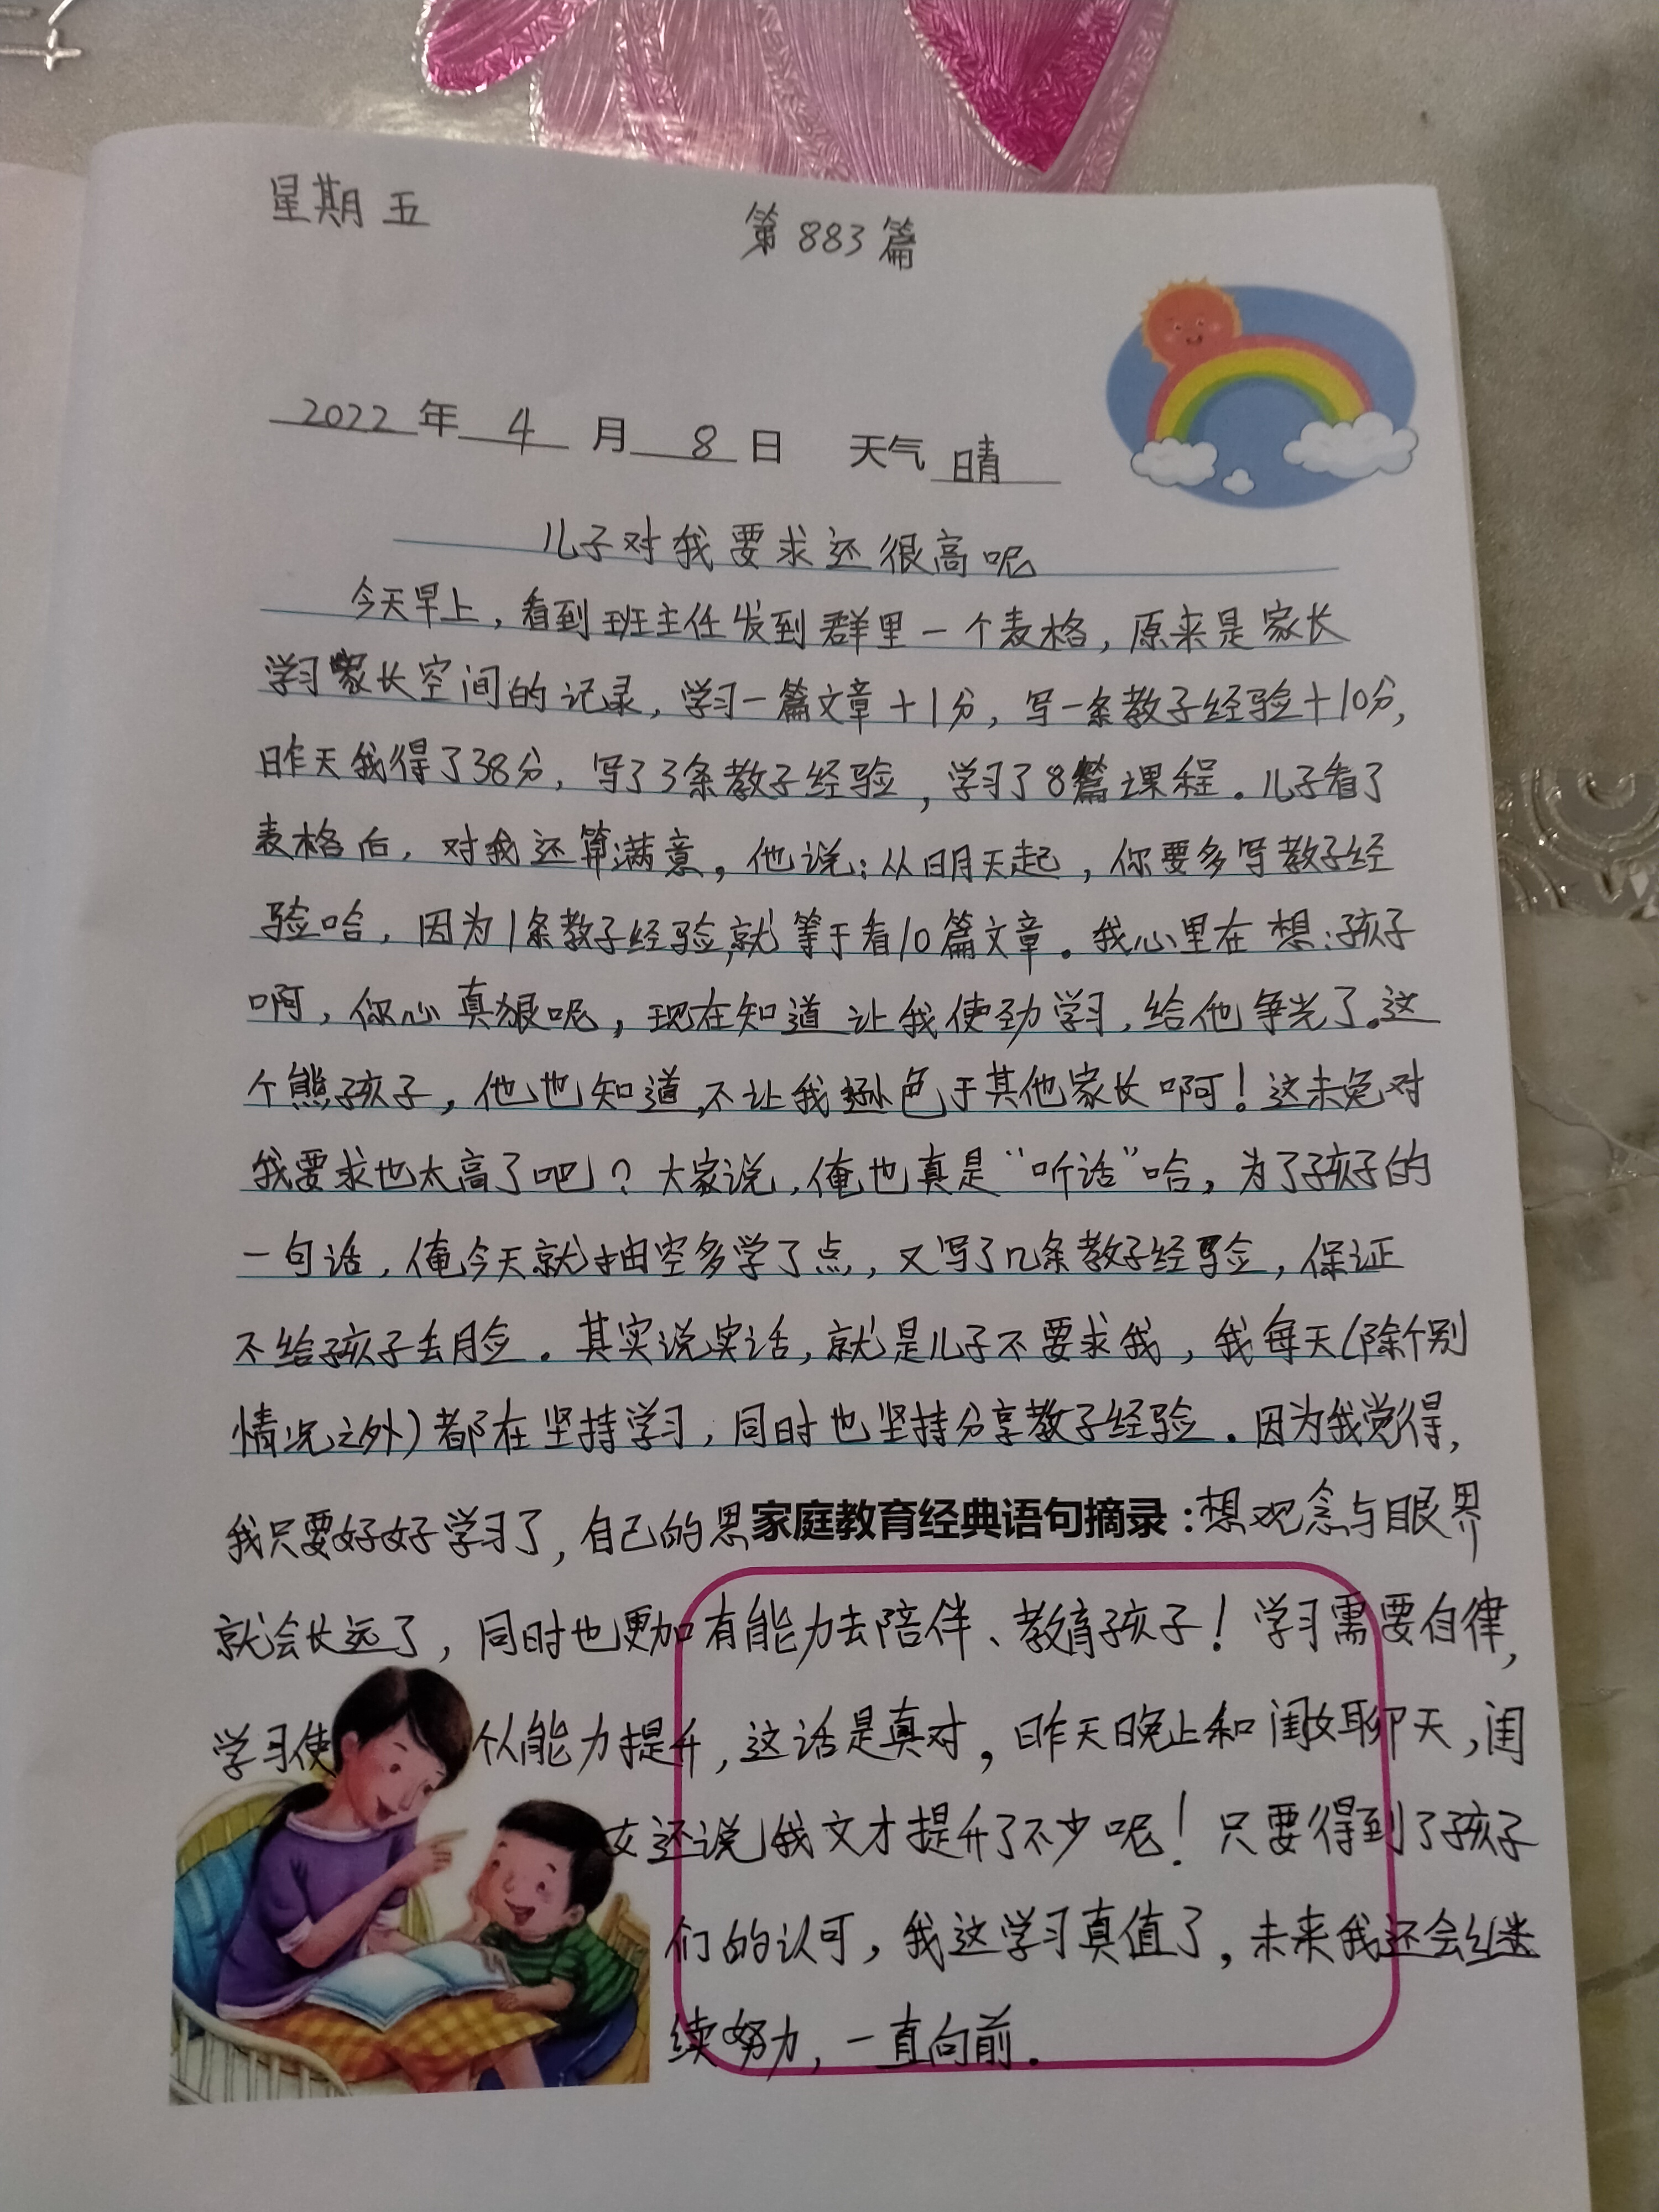 星期五 第883篇
2022年4月8日 天气晴
儿子对我要求还很高呢
今天早上，看到班主任发到群里一个表格，原来是家长
学习家长空间的记录，学习一篇文章+1分，写一条教子经验+10分，
昨天我得了38分，写了3条教子经验，学习了8篇课程。儿子看了
表格后，对我还算满意。他说：从明天起，你要多写教子经
验哈，因为1条教子经验，就等于看10篇文章。我心里在想：孩子
啊，你心真狠呢，现在知道让我使劲学习，给他争光了。这
个熊孩子，他也知道，不让我逊色于其他家长啊！这未免对
我要求也太高了吧？大家说，俺也真是“听话”哈，为了孩子的
一句话，俺今天就抽空多学了点，又写了几条教子经验，保证
不给孩子丢脸。其实说实话，就是儿子不要求我，我每天（除个别
情况之外）都在坚持学习，同时也坚持分享教子经验。因为我觉得，
我只要好好学习了，自己的思家庭教育经典语句摘录：想观念与眼界
就会长远了，同时也更加有能力去陪伴、教育孩子！学习需要自律，
学习使个人能力提升，这话是真对，昨天晚上和闺女聊天，闺
女还说我文才提升了不少呢！只要得到了孩子
们的认可，我这学习真值了，未来我还会继
续努力，一直向前.